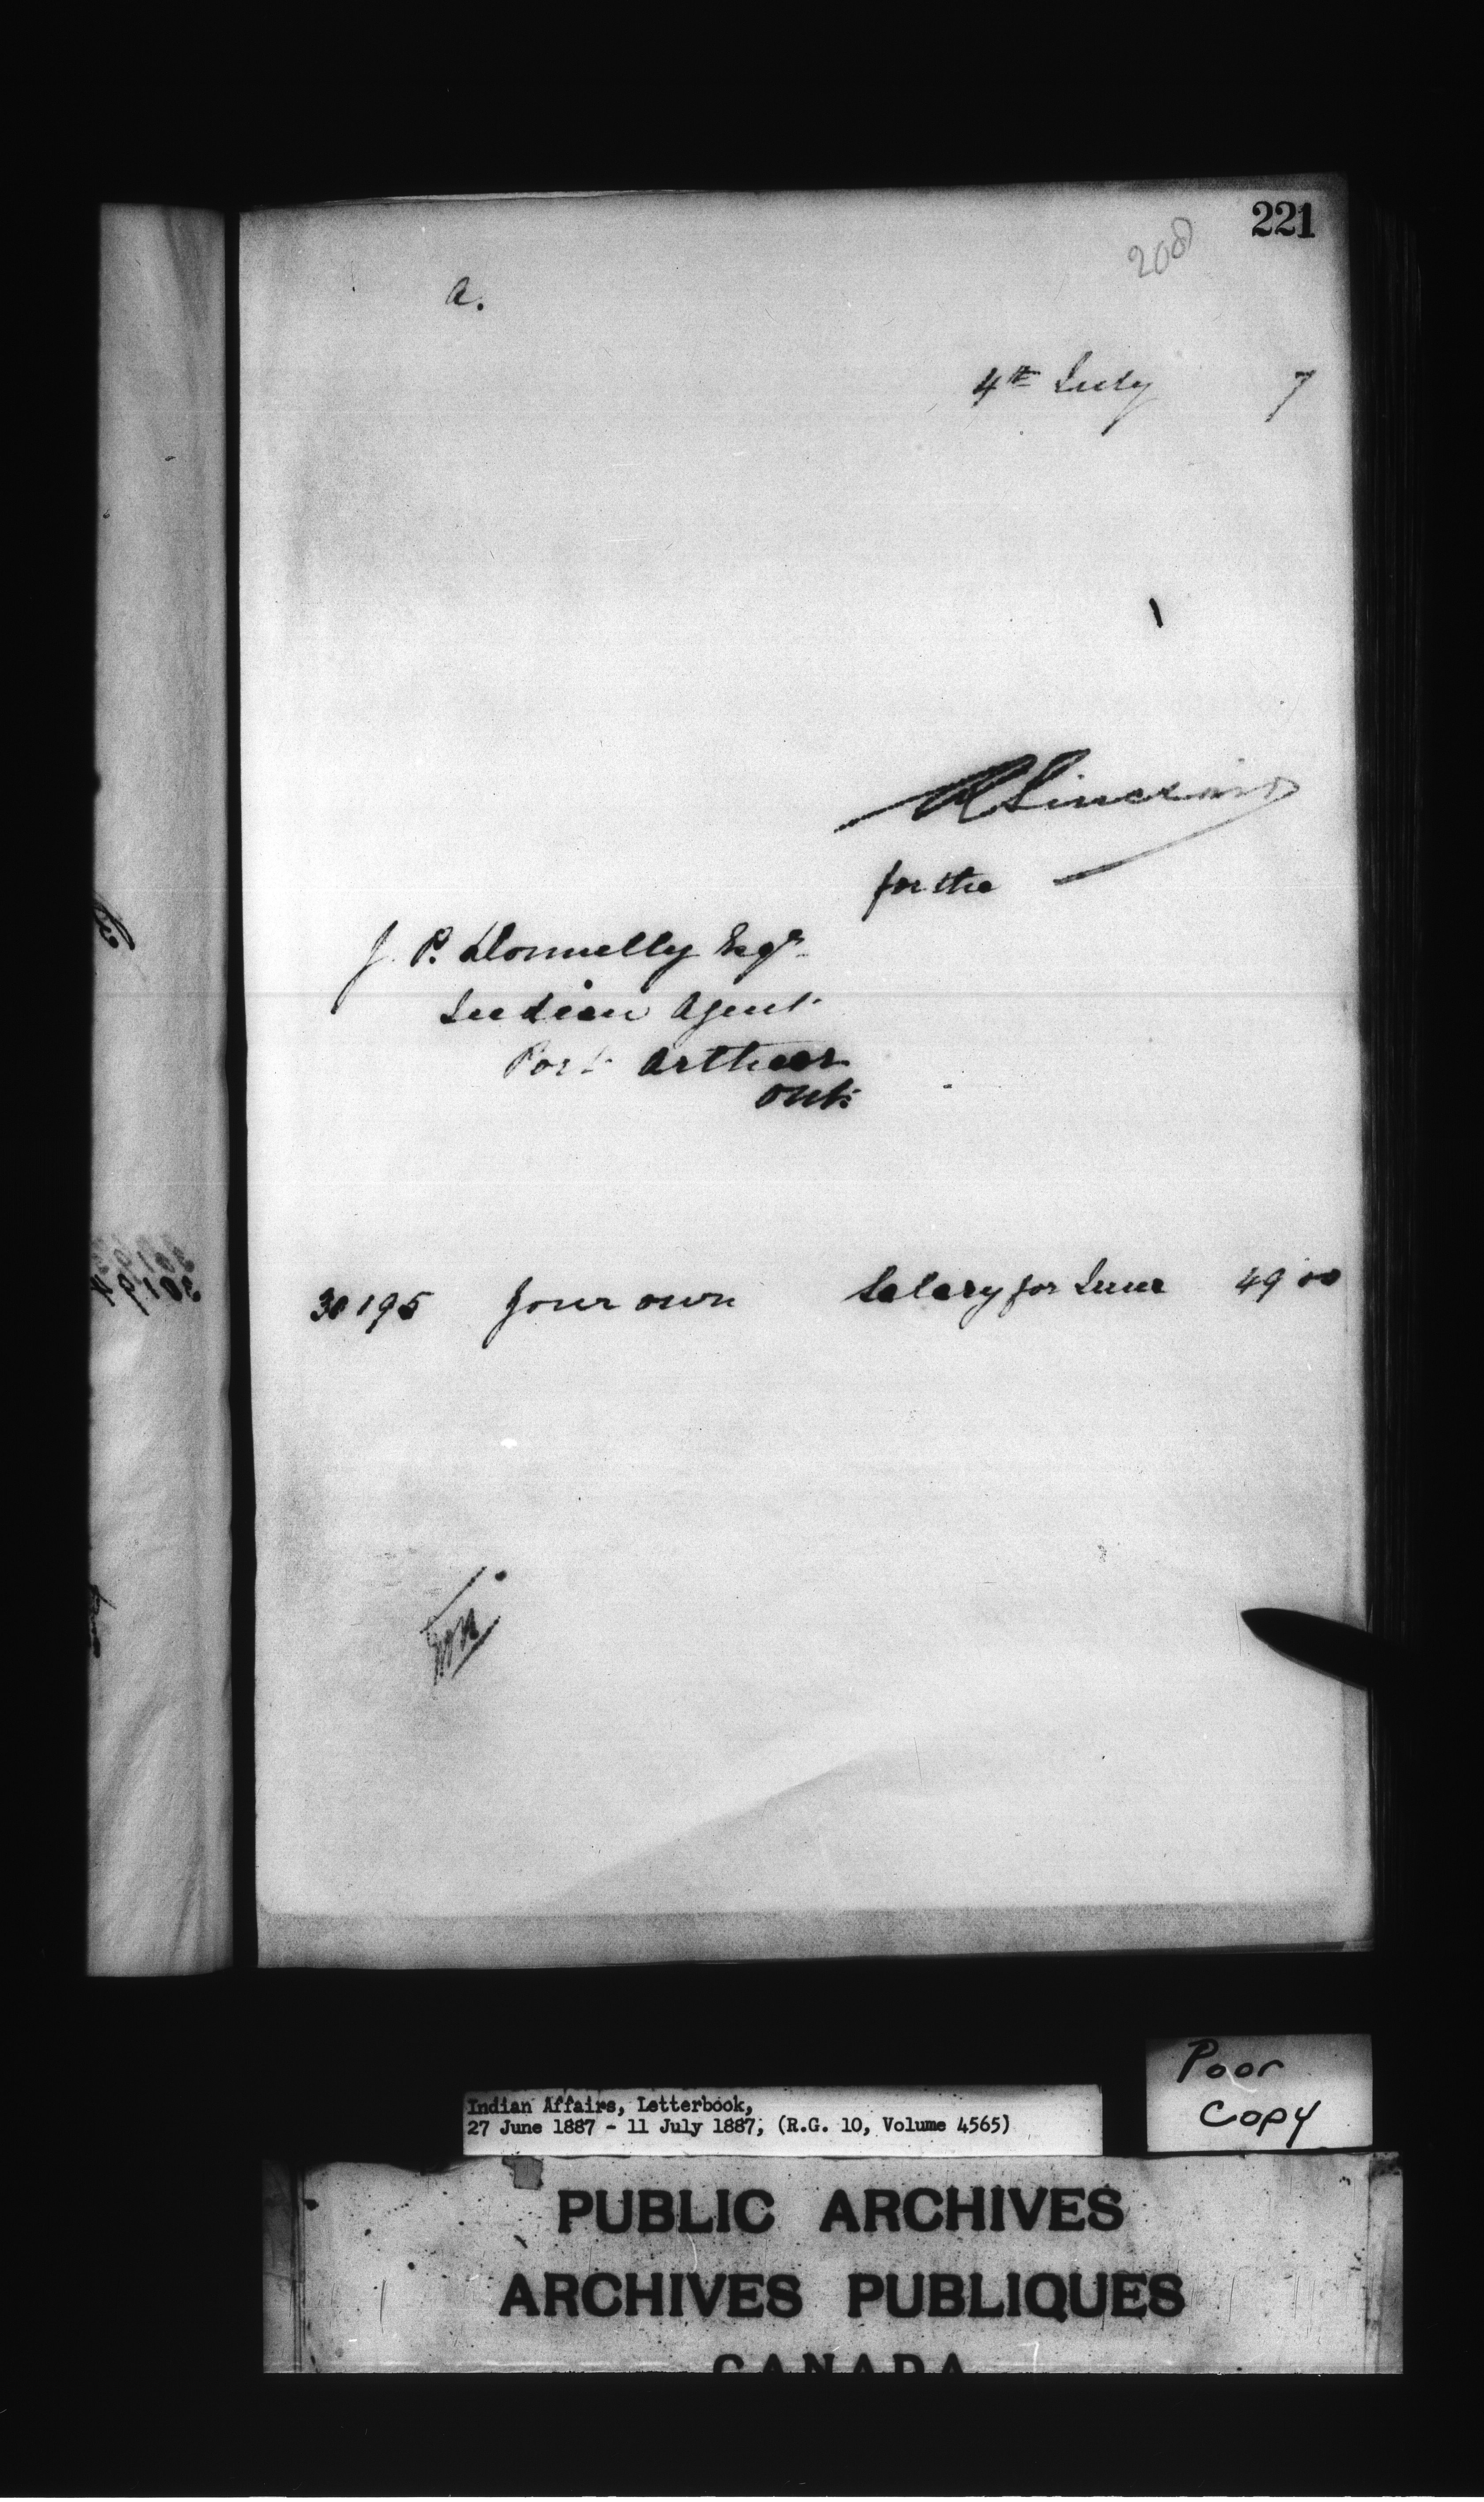 221
208
a.
4th July 7
R Sinclair
for the
J. P. Donnelly Esqr
Indian Agent
Port Arthur
Ont.
30195 Your own Salary for June 49 00
30194
Poor
Copy
Indian Affairs, Letterbook,
27 June 1887 - 11 July 1887, (R.G. 10, Volume 4565)
PUBLIC ARCHIVES
ARCHIVES PUBLIQUES
CANADA